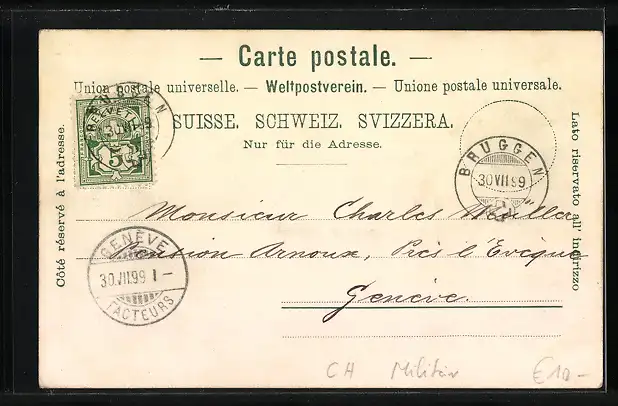 — Carte postale. —
Union postale universelle. — Weltpostverein. — Unione postale universale.
SUISSE. SCHWEIZ. SVIZZERA.
Nur für die Adresse.
Côté réservé à l'adresse.
Lato riservato all' indirizzo
HELVETIA
5
BRUGGEN
30 VII 99
BRUGGEN
30 VII 99
Monsieur Charles
Pension Arnoux, Près l'Evêque
Genève.
GENÈVE
30.VII.99 I –
FACTEURS
CH Militär €10–